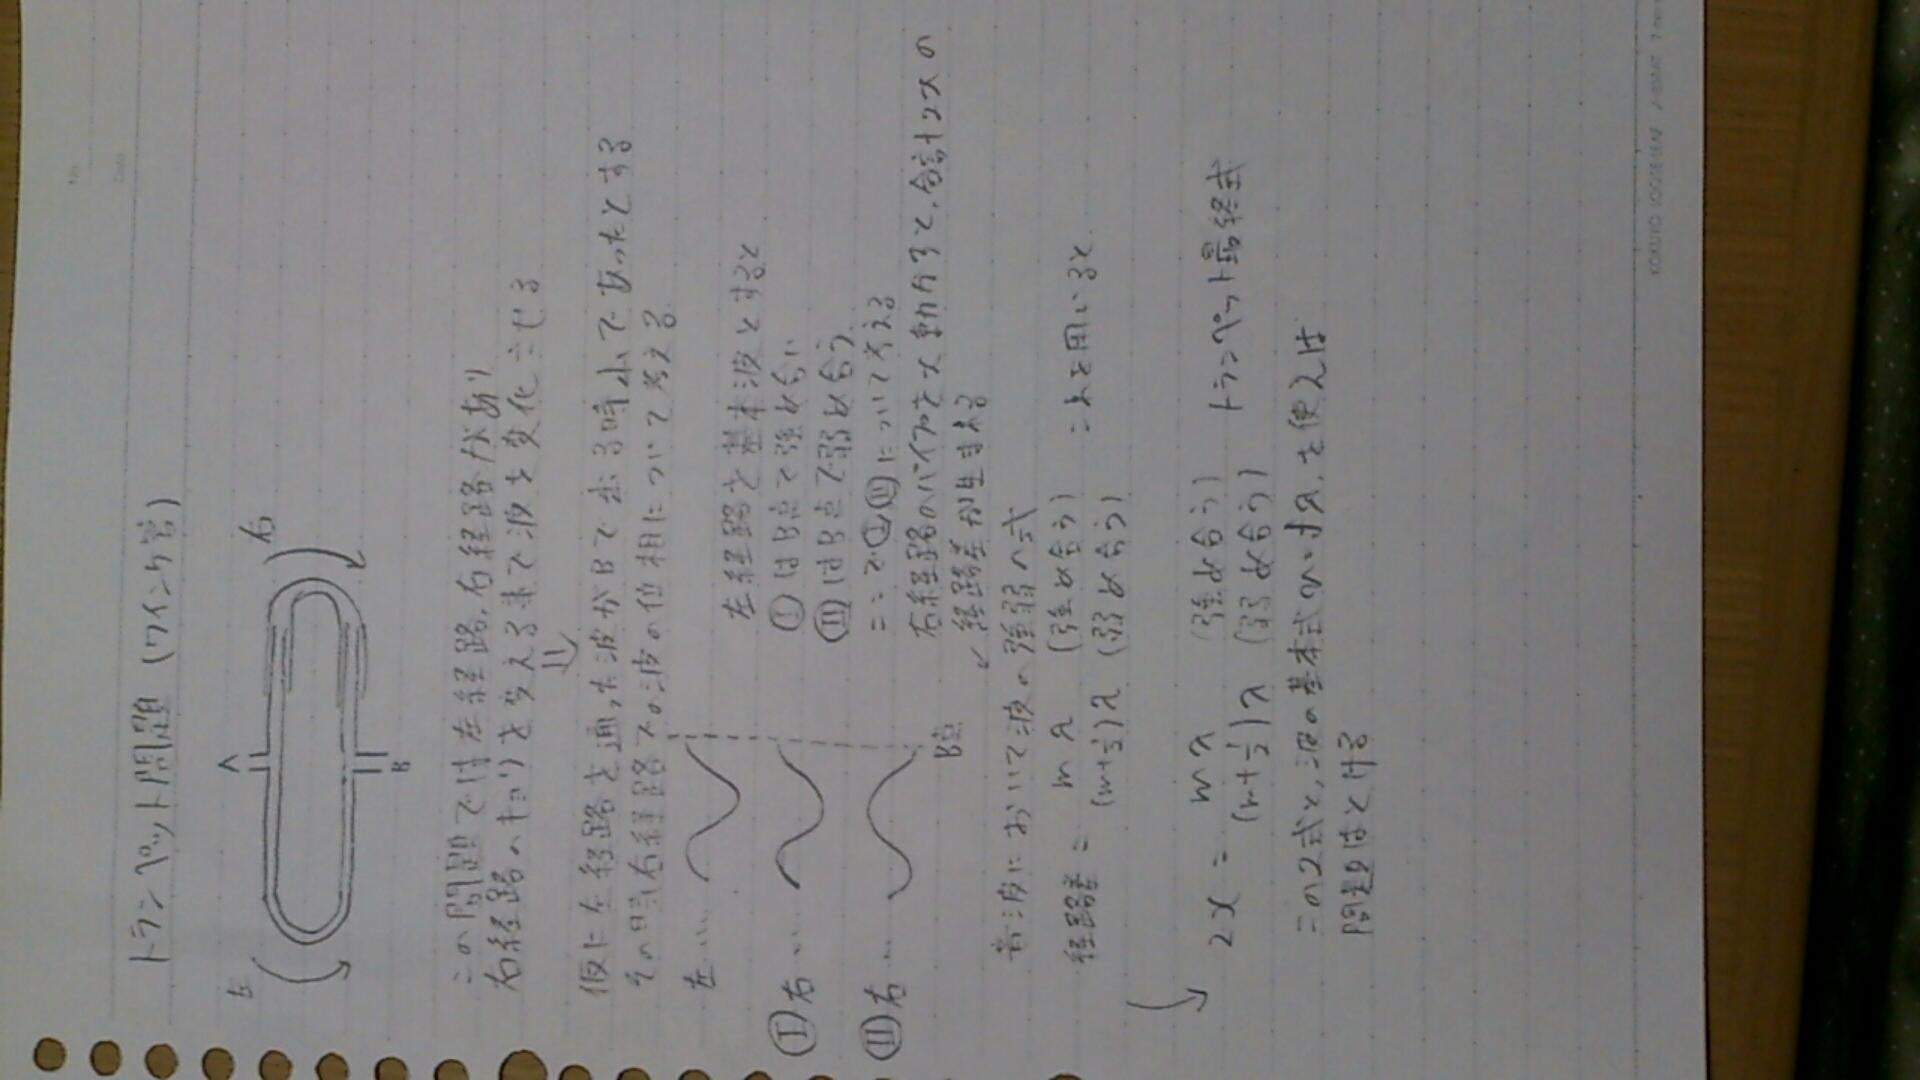 No.
Date
トランペット問題 (クインク管)
左
A
右
B
この問題では左経路,右経路があり
右経路のキョリを変える事で波を変化させる
仮に左経路を通った波がBで出る時小であったとする
その時右経路での波の位相について考える
左…
Ⅰ右…
Ⅱ右…
B点
左経路を基本波とすると
ⅠはB点で強め合い
ⅡはB点で弱め合う
ここでⅠⅡについて考える
右経路のパイプをx動かすと,合計2xの
経路差が生まれる
音波において波の強弱の式
経路差 = mλ (強め合う)
(m+1/2)λ (弱め合う)
これを用いると
2x = mλ (強め合う)
(m+1/2)λ (弱め合う)
トランペット最終式
この2式と,波の基本式v=fλ,を使えば
問題はとける
KOKUYO LOOSE-LEAF